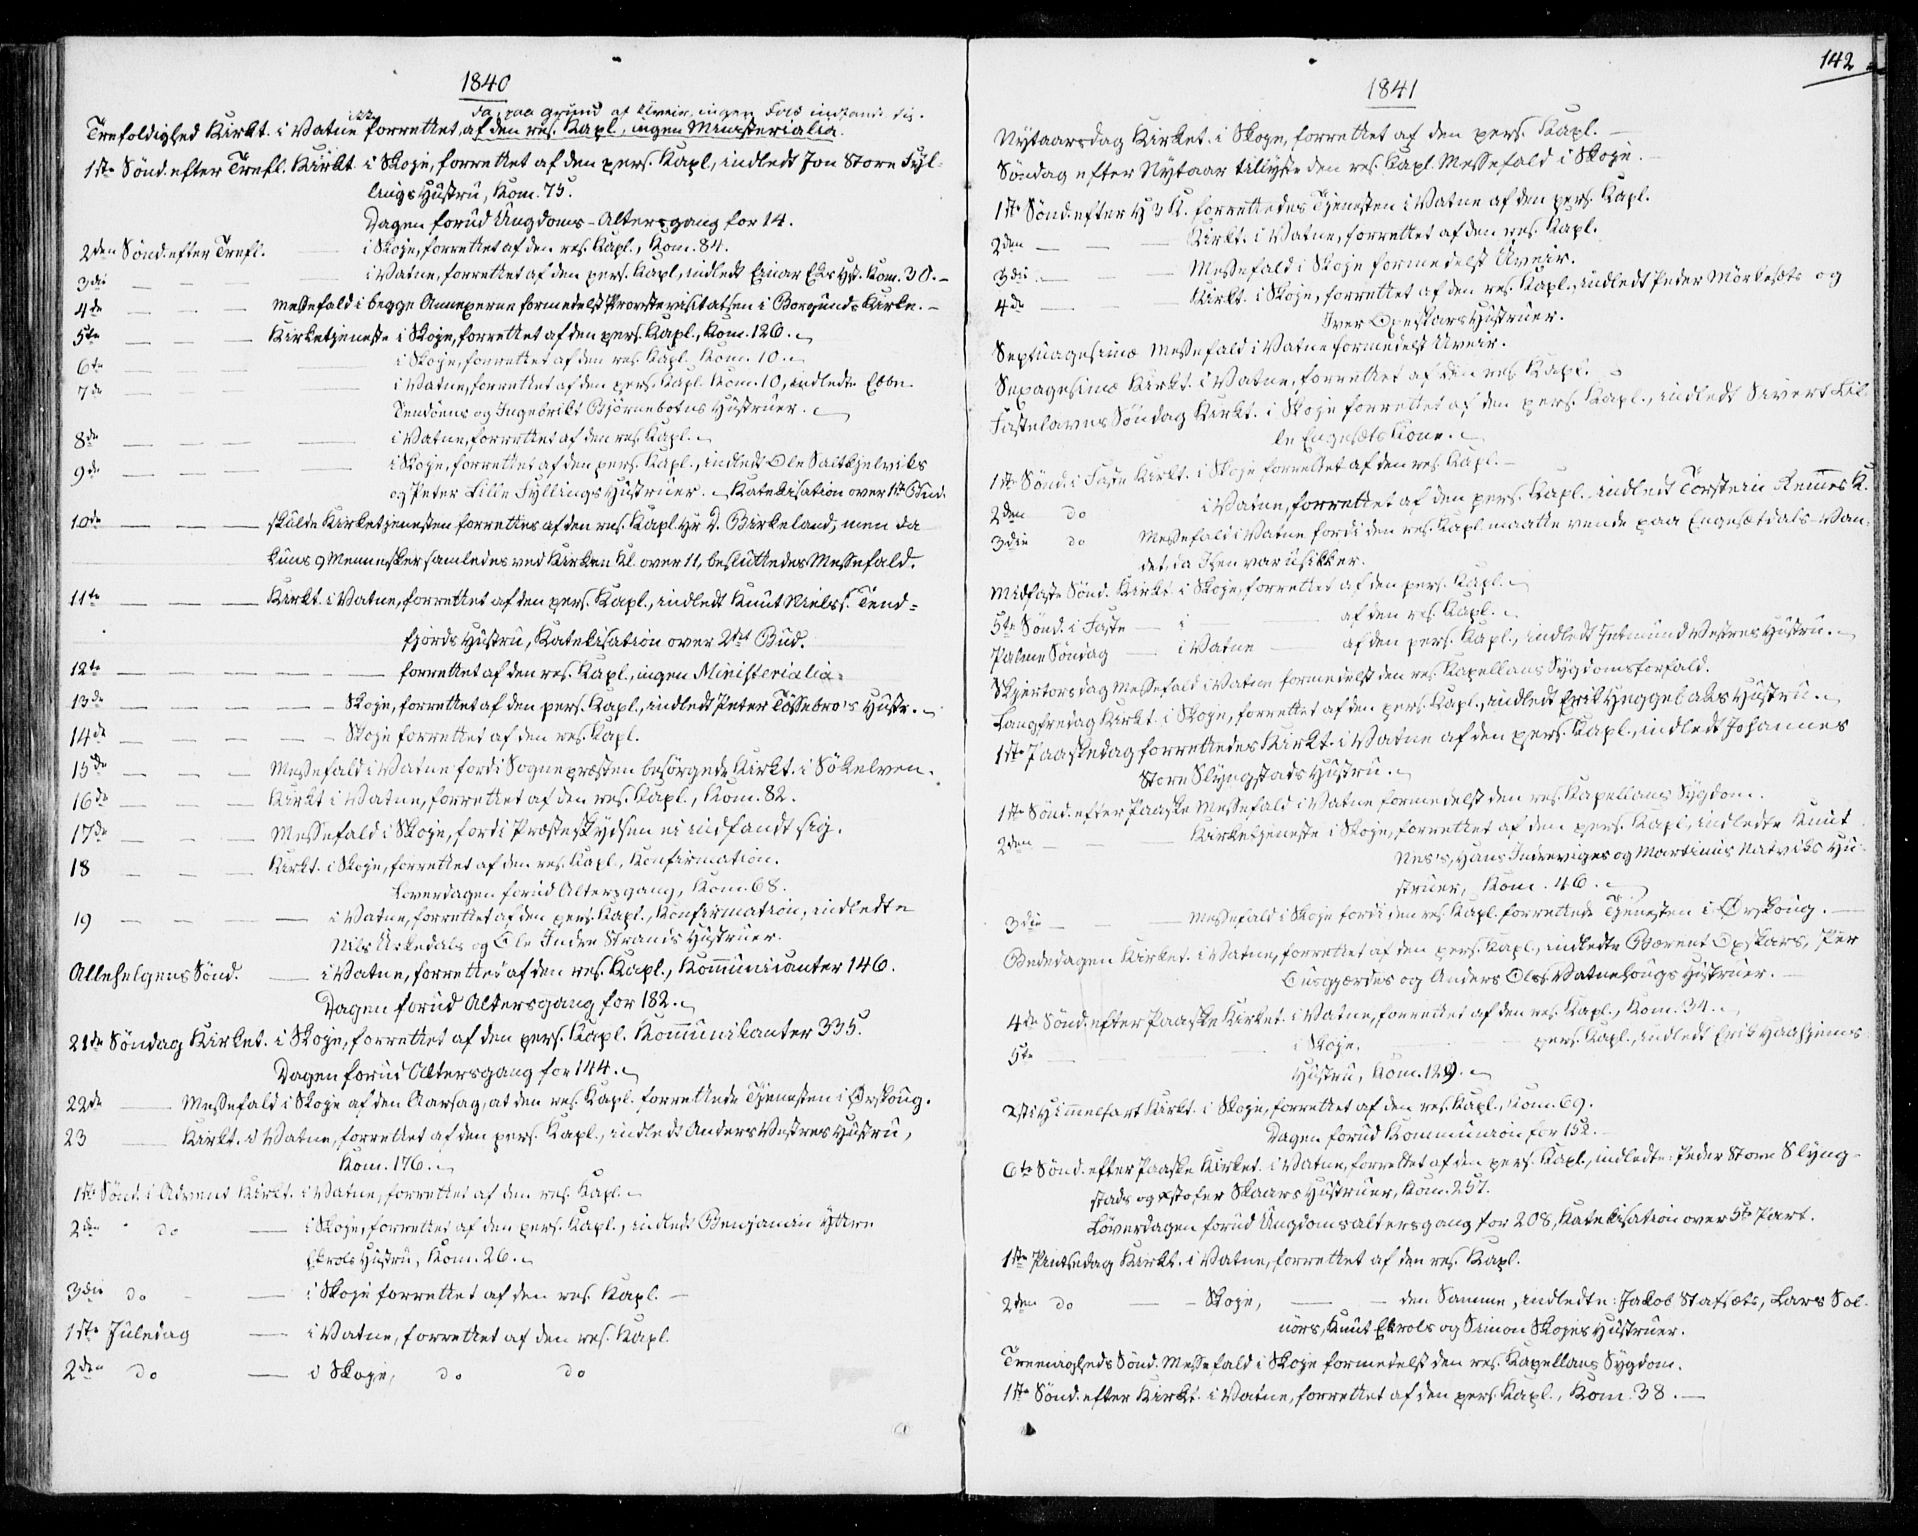 1840
da, paa Grund af Uveir, ingen Folk indfandt sig.
Trefoldighed Kirkt. i Vatne forrettet af den res. Kapl., ingen Ministerialia.
1ste Sønd. efter Trefl. Kirkt. i Skoje, forrettet af den pers. Kapl., indledt Jon Store Fyl-
lings Hustru, Kom. 75.
Dagen forud Ungdoms-Altersgang for 14.
2den Sønd. efter Trefl. — i Skoje, forrettet af den res. Kapl., Kom. 84.
3die — — — i Vatne, forrettet af den pers. Kapl., indledt Einar Ekr. Hst. Kom. 30. —
4de — — — Messefald i begge Annexerne formedelst Provstevisitatsen i Borgunds Kirke. —
5te — — — Kirketjeneste i Skoje, forrettet af den pers. Kapl., Kom. 126.
6te — — — i Skoje, forrettet af den res. Kapl. Kom. 10.
7de — — — i Vatne, forrettet af den pers. Kapl. Kom. 10, indledte Ebbe
Tenöens og Ingebrikt Bjørnebotns Hustruer.
8de — — — — i Vatne, forrettet af den res. Kapl.
9de — — — i Skoje, forrettet af den pers. Kapl., indledt Ole Saltkjelviks
og Peter Lille Fyllings Hustruer. Katekisation over 1ste Bud.
10de — — — skulde Kirketjenesten forrettes af den res. Kapl. Hr D. Birkeland, men da
kuns 9 Mennesker samledes ved Kirken Kl. over 11, besluttedes Messefald.
11te — — — Kirkt. i Vatne, forrettet af den pers. Kapl., indledt Knut Nielss. Tend-
fjords Hustru, Katekisation over 2det Bud.
12te — — — — — forrettet af den res. Kapl., ingen Ministerialia.
13de — — — — — Skoje, forrettet af den pers. Kapl., indledt Peter Tössebro's Hustr.
14de — — — — — Skoje forrettet af den res. Kapl.
15de — — — Messefald i Vatne fordi Sognepræsten besörgede Kirkt. i Sökelven.
16de — — — Kirkt i Vatne, forrettet af den res. Kapl., Kom. 82.
17de — — — Messefald i Skoje, fordi Præsteskydsen ei indfandt sig.
18 — — — Kirkt. i Skoje, forrettet af den res. Kapl., Konfirmation.
Löverdagen forud Altersgang, Kom. 68.
19 — — — — i Vatne, forrettet af den pers. Kapl., Konfirmation, indledte
Nils Uskedals og Ole Indre Strands Hustruer.
Allehelgens Sønd. — i Vatne, forrettet af den res. Kapl., Kommunicanter 146.
Dagen forud Altersgang for 182.
21de Søndag Kirket. i Skoje, forrettet af den pers. Kapl. Kommunikanter 335.
Dagen forud Altersgang for 144.
22de — Messefald i Skoje af den Aarsag, at den res. Kapl. forrettede Tjenesten i Ørskoug.
23 — Kirkt. i Vatne, forrettet af den pers. Kapl., indledt Anders Vestres Hustru,
Kom. 176.
1ste Sønd. i Advent Kirkt. i Vatne, forrettet af den res. Kapl.
2den do — i Skoje, forrettet af den pers. Kapl., indledt Benjamin Yttre
Ekrols Hustru, Kom. 26.
3die do — i Skoje forrettet af den res. Kapl. —
1ste Juledag — i Vatne, forrettet af den res. Kapl.
2den do — i Skoje, do do
142
1841
Nytaarsdag Kirket. i Skoje, forrettet af den pers. Kapl. —
Søndag efter Nytaar tillyste den res. Kapl. Messefald i Skoje. —
1ste Sønd. efter H 3 K. forrettedes Tjenesten i Vatne af den pers. Kapl.
2den — — — Kirkt. i Vatne, forrettet af den res. Kapl.
3die — — — Messefald i Skoje formedelst Uveir.
4de — — Kirkt. i Skoje, forrettet af den res. Kapl., indledt Peter Mörkesæts og
Iver Opeskars Hustruer.
Septuagesimæ Messefald i Vatne formedelst Uveir.
Sexagesimæ Kirkt. i Vatne, forrettet af den res. Kapl.
Fastelavns Søndag Kirkt. i Skoje forrettet af den pers. Kapl., indledt Sivert Lil-
le Engesæts Kone.
1ste Sønd. i Faste Kirkt. i Skoje forrettet af den res. Kapl. —
2den do i Vatne, forrettet af den pers. Kapl. indledt Torstein Remmes K.
3die do Messefald i Vatne fordi den res. Kapl. maatte vende paa Engesætdals-Van-
det, da Isen var usikker.
Midfaste Sønd. Kirkt. i Skoje, forrettet af den pers. Kapl.
5te Sønd. i Faste — i — af den res. Kapl.
Palme Søndag — i Vatne — af den pers. Kapl., indledt Vestres Hustru.
Skjertorsdag Messefald i Vatne formedelst den res. Kapellans Sygdomsforfald.
Langfredag Kirkt. i Skoje, forrettet af den pers. Kapl., indledt Erik Huggelakes Hustru.
1ste Paaskedag forrettedes Kirkt. i Vatne af den pers. Kapl., indledt Johannes
Store Slyngstads Hustru.
1ste Sønd. efter Paaske Messefald i Vatne formedelst den res. Kapellans Sygdom.
2den — — Kirketjeneste i Skoje, forrettet af den pers. Kapl., indledte Knut
Nes's, Hans Indreviges og Martinus Natviks Hu-
struer, Kom. 46.
3die — — Messefald i Skoje fordi den res. Kapl. forrettede Tjenesten i Ørskoug. —
Bededagen Kirket. i Vatne, forrettet af den pers. Kapl., indledte Bærent Opskars, Per
Husgjerdes og Anders Olss. Vatnehougs Hustruer. —
4de Sønd. efter Paaske Kirket. i Vatne, forrettet af den res. Kapl., Kom. 34.
5te — i Skoje. — pers. Kapl., indledt Erik Haahjems
Hustru, Kom. 129.
Xsti Himmelfart Kirkt. i Skoje, forrettet af den res. Kapl., Kom. 69.
Dagen forud Kommunion for 152.
6te Sønd. efter Paaske Kirket. i Vatne, forrettet af den pers. Kapl., indledte: Peder Store Slyng-
stads og Xstofer Skaars Hustruer, Kom. 257.
Löverdagen forud Ungdomsaltersgang for 208, Katekisation over 5te Part.
1ste Pintsedag Kirkt. i Vatne, forrettet af den res. Kapl.
2den do — — Skoje, — — den Samme, indledte: Jakob Stafsets, Lars Sol-
nörs, Knut Ekrols og Simon Skojes Hustruer.
Treenigheds Sønd. Messefald i Skoje formedelst den res. Kapellans Sygdom.
1ste Sønd. efter Kirkt. i Vatne, forrettet af den pers. Kapl., Kom. 38. —